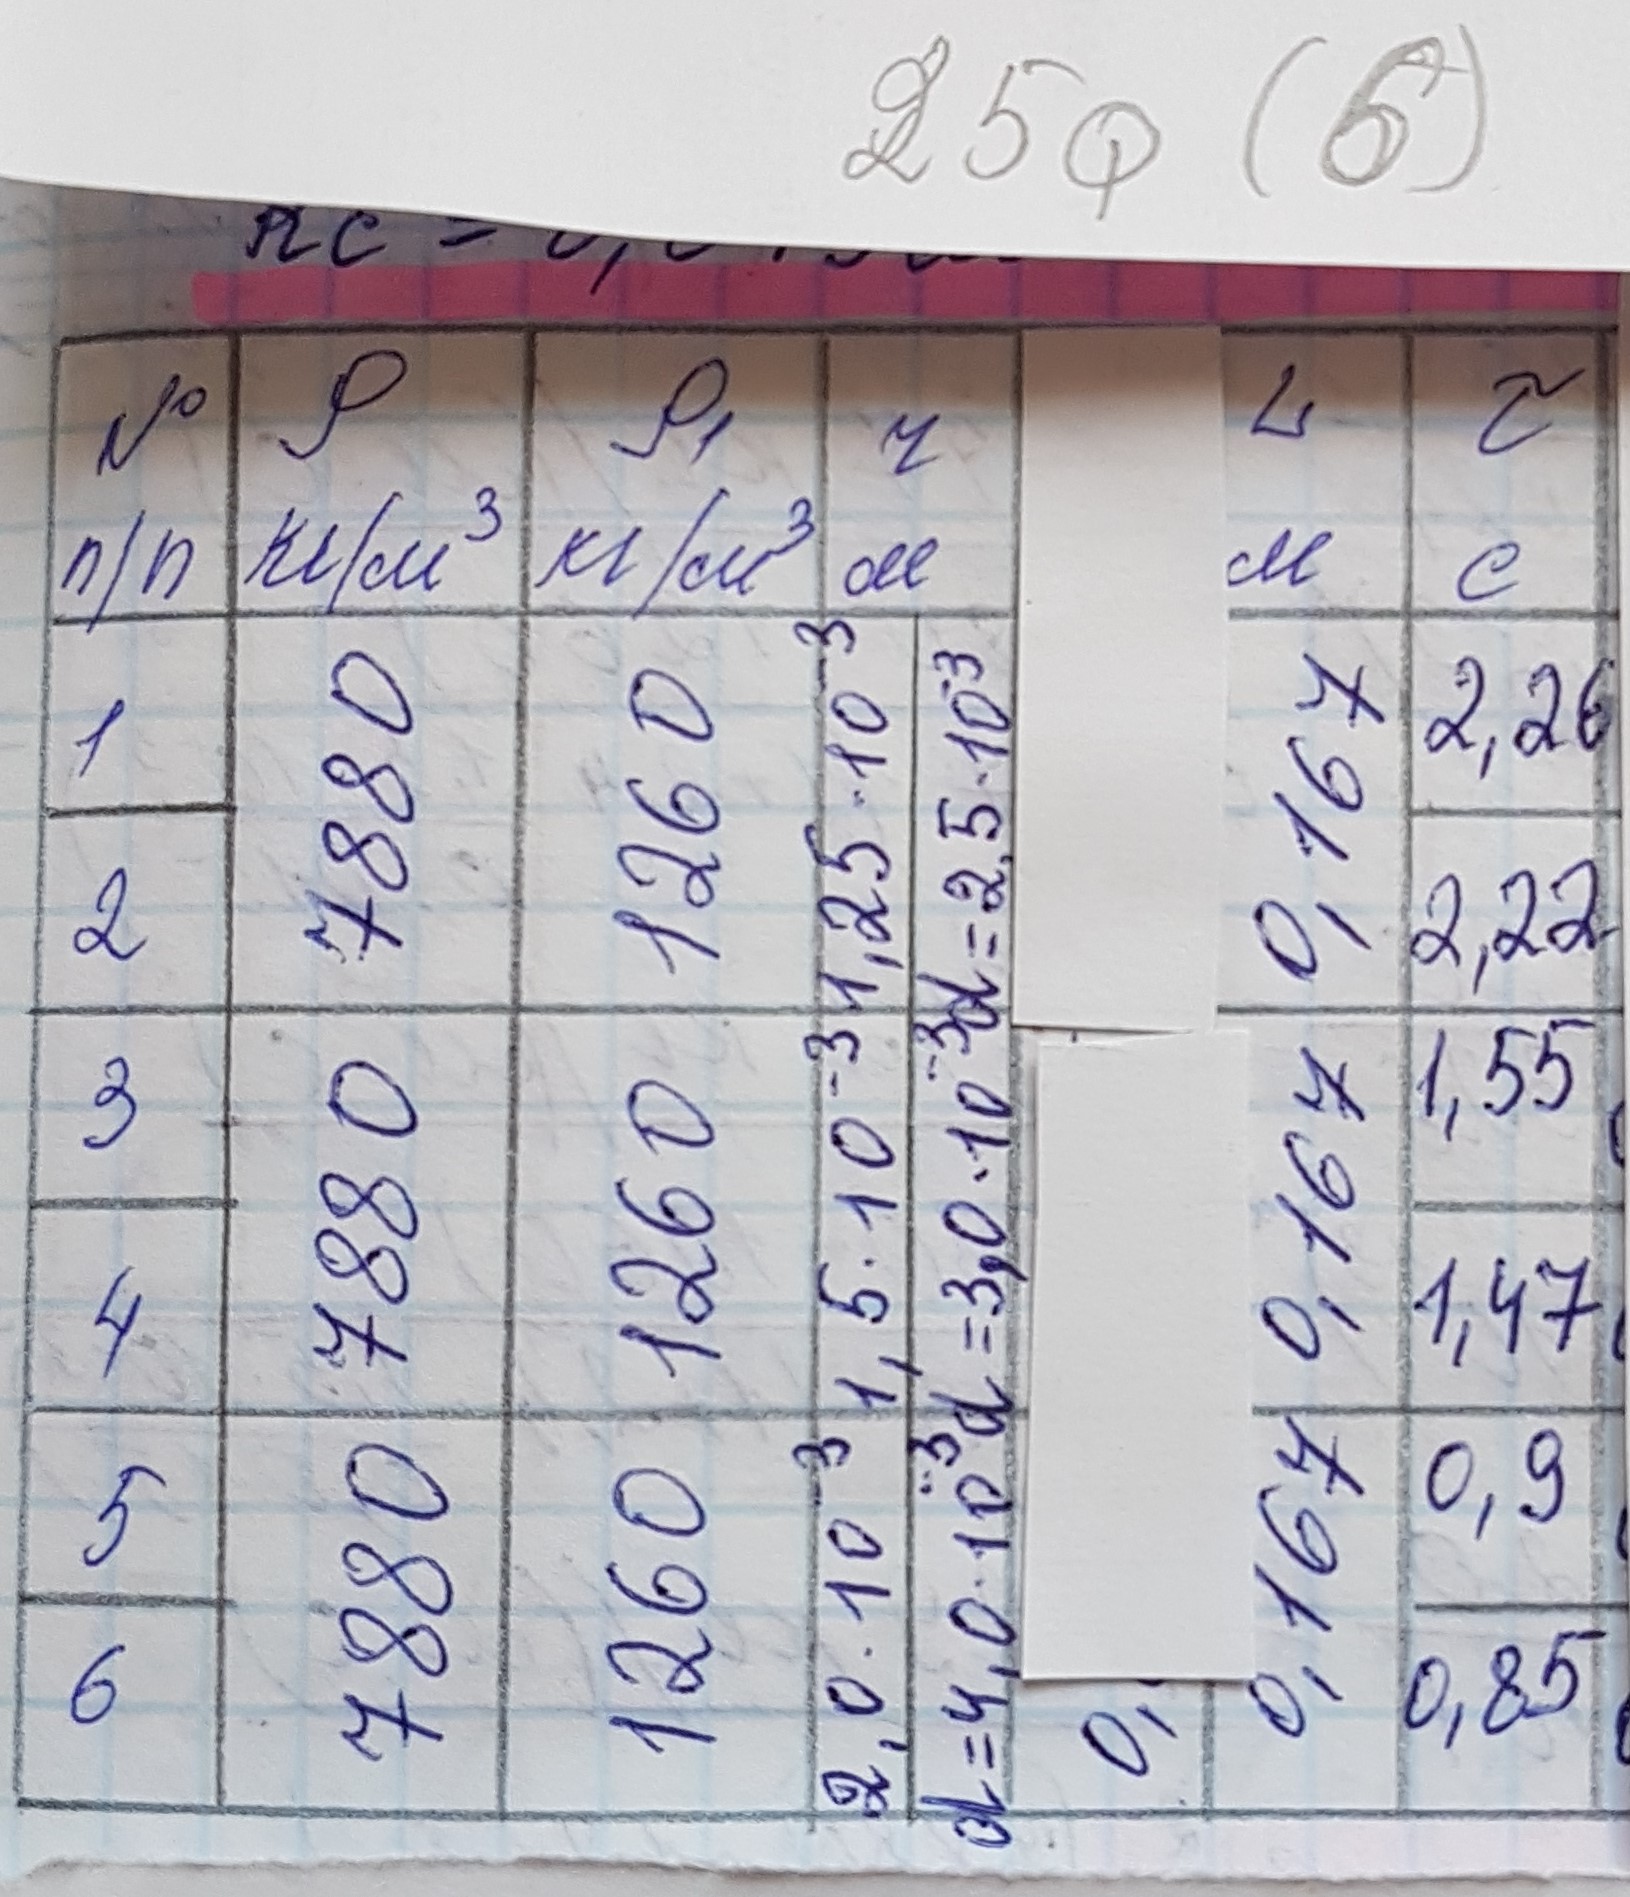 25φ (б)
№ ρ ρ₁ r L τ
п/п кг/м³ кг/м³ м м с
1 7880 1260 1,25·10⁻³ d=2,5·10⁻³ 0,167 2,26
2 2,22
3 7880 1260 1,5·10⁻³ d=3,0·10⁻³ 0,167 1,55
4 1,47
5 7880 1260 2,0·10⁻³ d=4,0·10⁻³ 0,167 0,9
6 0,85